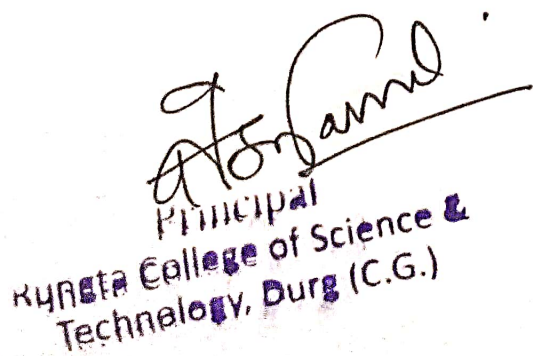 Principal
Rungta College of Science &
Technology, Durg (C.G.)